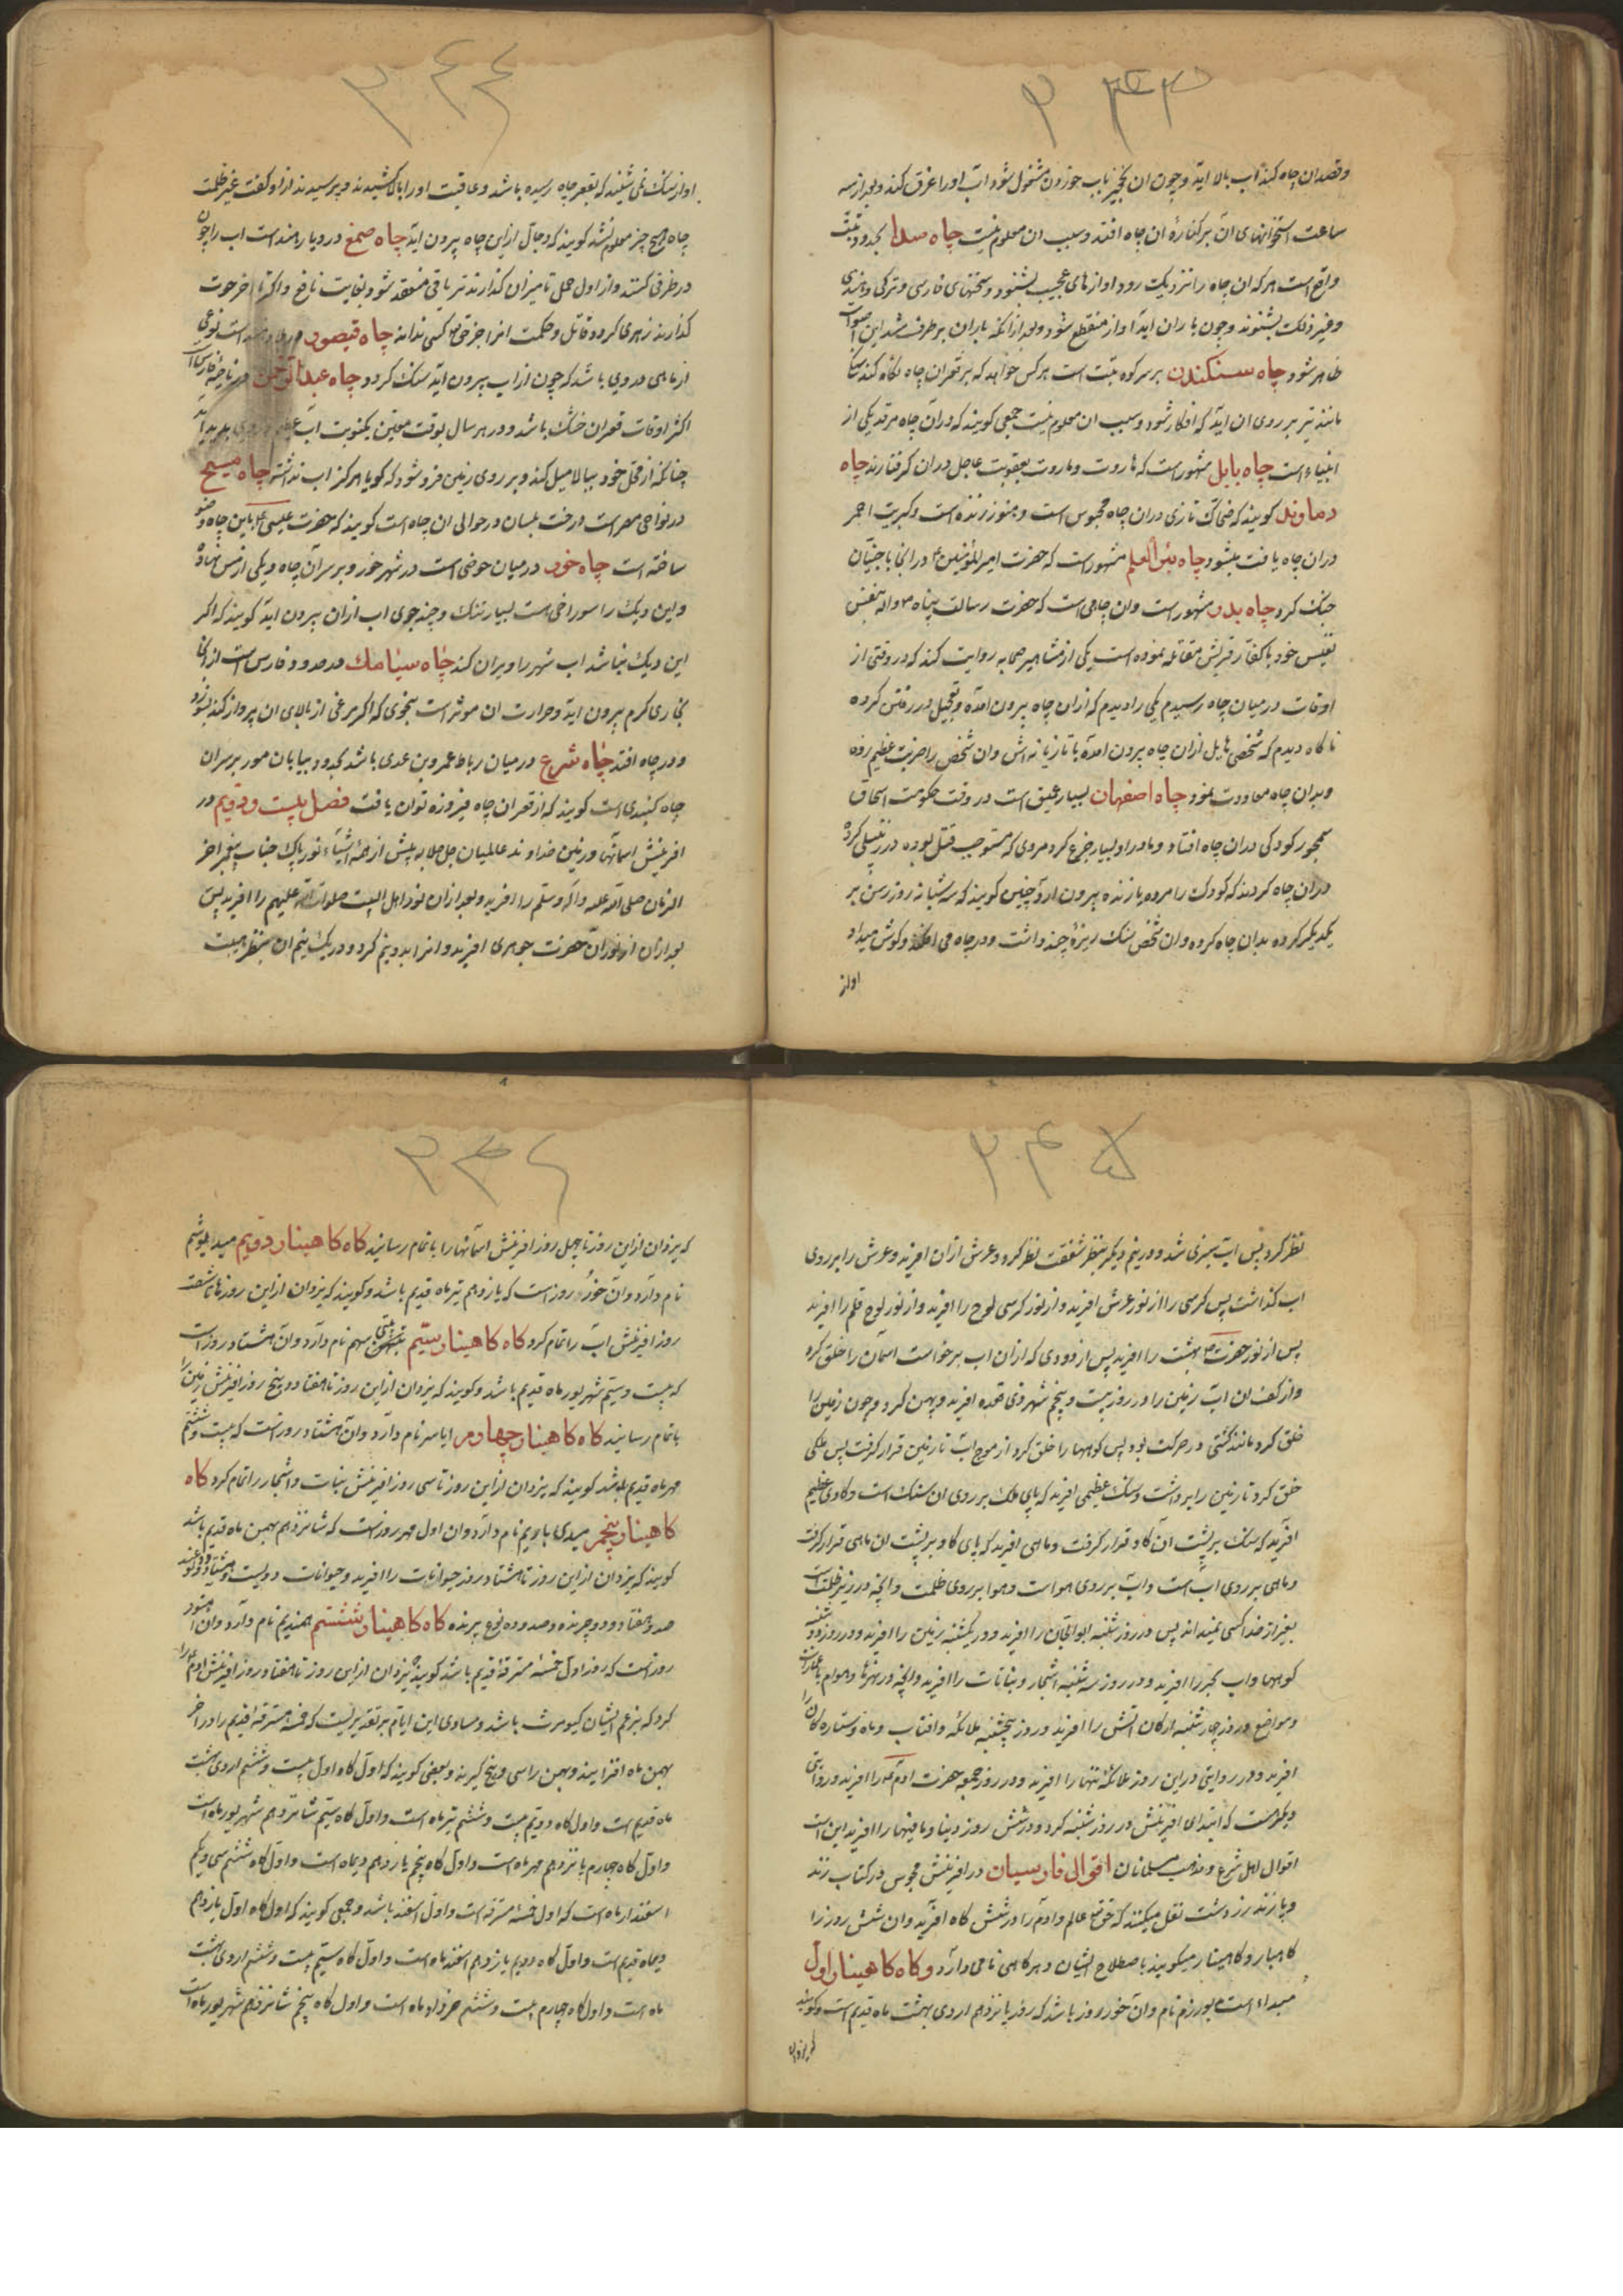 ۲۴۳
وقصد ان چاه کند اب بالا اید وچون ان نخجیر باب خوردن مشغول شود اب اورا غرق کند وبعد از سه
ساعت استخوانهای ان بر کنارهٔ ان چاه افتد وسبب ان معلوم نیست چاه صدا بحدود تبت
واقع است هر که ان چاه را نزدیک رود اوازهای عجیب بشنود وسخنهای فارسی وترکی وهندی
وغیر ذلک بشنوند وچون باران اید اواز منقطع شود وبعد از انکه باران برطرف شد این اصوات
ظاهر شود چاه سنکندن بر سر کوه تبت است هر کس خواهد که بر قعر ان چاه نکاه کند سنکی
مانند تیر بر روی ان اید که افکار شود وسبب ان معلوم نیست جمعی کویند که دران چاه مرقد یکی از
انبیاء است چاه بابل مشهور است که هاروت وماروت بعقوبت عاجل دران کرفتارند چاه
دماوند کویند که ضحاک تازی دران چاه محبوس است وهنوز زنده است وکبریت احمر
دران چاه یافت میشود چاه بئر العلم مشهور است که حضرت امیر المؤمنین ع در انجا با جنیان
جنک کرد چاه بدر مشهور است وان چاهی است که حضرت رسالت پناه ص واله بنفس
نفیس خود با کفار قریش مقاتله نموده است یکی از مشاهیر صحابه روایت کند که در وقتی از
اوقات در میان چاه رسیدم یکی را دیدم که ازان چاه بیرون امده وتعجیل در رفتن کرده
ناکاه دیدم که شخصی هایل ازان چاه بیرون امده با تازیانه اتش وان شخص را ضربت عظیم زده
وبدان چاه معاودت نمود چاه اصفهان بسیار عمیق است در وقت حکومت اسحاق
سمجور کودکی دران چاه افتاد ومادر او بسیار جزع کرد مردی که مستوجب قتل بوده در زنبیلی کرده
دران چاه کردند که کودک را مرده یا زنده بیرون ارد چنین کویند که سه شبانه روز رسن بر
یکدیکر کرده بدان چاه کرده وان شخص سنک ریزهٔ چند داشت ودر چاه می افکند وکوش میداد
اواز
۲۴۴
اواز سنک نمی شنید که بقعر چاه رسیده باشد وعاقبت اورا بالا کشیدند وپرسیدند ازاو کفت غیر ظلمت
چاه هیچ چیز معلوم نشد کویند که دجال ازاین چاه بیرون اید چاه صمغ در دیار هند است اب را چون
در ظرفی کنند واز اول حمل تا میزان کذارند تریاقی منعقد شود بغایت نافع واکر تا اخر حوت
کذارند زهری کردد قاتل وحکمت انرا جز حقتعالی کسی نداند چاه قیصور است نوعی
از ماهی دروی باشد که چون از اب بیرون اید سنک کردد چاه عبدالرحمن در ناحیهٔ فارس است
اکثر اوقات قعر ان خشک باشد ودر هر سال بوقت معین یکنوبت اب پدید اید
چنانکه از محل خود ببالا میل کند وبر روی زمین فرو شود که کویا هرکز اب نداشته چاه مسیح
در نواحی مصر است درخت بلسان در حوالی ان چاه است کویند که حضرت عیسی ع باین چاه وضو
ساخته است چاه خور در میان حوضی است در شهر خور وبر سر آن چاه دیکی از مس نهاده
واین دیک را سوراخی است بسیار تنک وچند جوی اب ازان بیرون اید کویند که اکر
این دیک نباشد اب شهر را ویران کند چاه سیامک در حدود فارس است ازانجا
بخاری کرم بیرون اید وحرارت ان موثر است بنحوی که اکر مرغی از بالای ان پرواز کند بسوزد
ودر چاه افتد چاه شرع در میان رباط عمرو بن عدی باشد بحدود بیابان مور بر سر ان
چاه کنبدی است کویند که از قعر ان چاه فیروزه توان یافت فصل بیست ودویم در
افرینش اسمانها وزمین خداوند عالمیان جل جلاله پیش از همه اشیاء نور پاک جناب پیغمبر اخر
الزمان صلی الله علیه واله وسلم را افرید وبعد ازان نور اهل البیت صلوات الله علیهم را افرید پس
بعد ازان از نور ان حضرت جوهری افرید وانرا بدو نیم کرد ودر یک نیم ان بنظر هیبت
۲۴۵
نظر کرد پس اب شیرین شد ودر نیم دیکر بنظر شفقت نظر کرد وعرش ازان افرید وعرش را بر روی
اب کذاشت پس کرسی را از نور عرش افرید واز نور کرسی لوح را افرید واز نور لوح قلم را افرید
پس از نور حضرت ص بهشت را افرید پس از دودی که ازان اب برخواست اسمان را خلق کرد
واز کف ان اب زمین را ودر روز بیست وپنجم شهر ذی قعده افرید وپهن کرد وچون زمین را
خلق کرد مانند کشتی در حرکت بود پس کوهها را خلق کرد از موج اب تا زمین قرار کرفت پس ملکی
خلق کرد تا زمین را برداشت وسنک عظیمی افرید که پای ملک بر روی ان سنک است وکاوی عظیم
افرید که سنک بر پشت آن کاو قرار کرفت وماهی افرید که پای کاو بر پشت ان ماهی قرار کرفت
وماهی بر روی اب است واب بر روی هوا است وهوا بر روی ظلمت وانچه در زیر ظلمت است
بغیر از خدا کسی نمیداند پس در روز شنبه ابو الجان را افرید ودر یکشنبه زمین را افرید ودر روز دوشنبه
کوهها واب بحر را افرید ودر روز سه شنبه اشجار ونباتات را افرید وانچه در نهرها وهوام با عمارات
ومواضع ودر روز چهارشنبه ارکان اتش را افرید ودر روز پنجشنبه ملائکه وافتاب وماه وستاره کان را
افرید ودر روایتی دراین روز ملائکهٔ تنها را افرید ودر روز جمعه حضرت ادم ع را افرید وروایتی
دیکر است که ابتدای افرینش در روز شنبه کرد ودر شش روز دنیا ومافیها را افرید این است
اقوال اهل شرع ومذهب مسلمانان اقوال فارسیان در افرینش مجوس در کتاب زند
وپازند زردشت نقل میکنند که حقتعالی عالم وادم را در شش کاه افرید وان شش روز را
کاهبار وکاهینار میکویند باصطلاح ایشان وهر کاهی نامی دارد وکاه کاهینار اول
مبداء است میورزم نام وان خور روز باشد که روز پانزدهم اردی بهشت ماه قدیم است وکویند
که یزدان
۲۴۶
که یزدان ازاین روز تا چهل روز افرینش اسمانها را باتمام رسانید کاه کاهینار دویم میدیوشم
نام دارد وان خور روز است که یازدهم تیر ماه قدیم باشد وکویند که یزدان ازاین روز تا شصت
روز افرینش اب را تمام کرد کاه کاهینار سیم سهم نام دارد وان هشتاد روز است
که بیست وسیم شهریور ماه قدیم باشد وکویند که یزدان ازاین روز تا هفتاد وپنج روز افرینش زمین را
باتمام رسانید کاه کاهینار چهارم ایاسر نام دارد وان هشتاد روز است که بیست وششم
مهر ماه قدیم باشد کویند که یزدان ازاین روز تا سی روز افرینش نبات واشجار را تمام کرد کاه
کاهینار پنجم میدی یاریم نام دارد وان اول مهر روز است که شانزدهم بهمن ماه قدیم باشد
کویند که یزدان ازاین روز تا هشتاد روز حیوانات را افرید وحیوانات دویست وهشتاد ودواند
صد وهفتاد ودو چرنده وصد وده نوع پرنده کاه کاهینار ششم همندیم نام دارد وان
روز است که روز اول خمسهٔ مسترقهٔ قدیم باشد کویند یزدان ازاین روز تا هفتاد روز افرینش ادم را
کرد که بزعم ایشان کیومرث باشد ومساوی این ایام بر تقدیریست که خمسهٔ مسترقهٔ قدیم را در اخر
بهمن ماه افزایند وبهمن را سی وپنج کیرند وبعضی کویند که اول کاه اول بیست وششم اردی بهشت
ماه قدیم است واول کاه دویم بیست وششم تیر ماه است واول کاه سیم شانزدهم شهریور ماه است
واول کاه چهارم پانزدهم مهر ماه است واول کاه پنجم یازدهم دیماه است واول کاه ششم سی ویکم
اسفندارماه است که اول خمسهٔ مسترقه است واول اسفند باشد وجمعی کویند که اول کاه اول یازدهم
دیماه قدیم است واول کاه دویم یازدهم اسفند ماه است واول کاه سیم بیست وششم اردی بهشت
ماه است واول کاه چهارم بیست وششم خرداد ماه است واول کاه پنجم شانزدهم شهریور ماه است